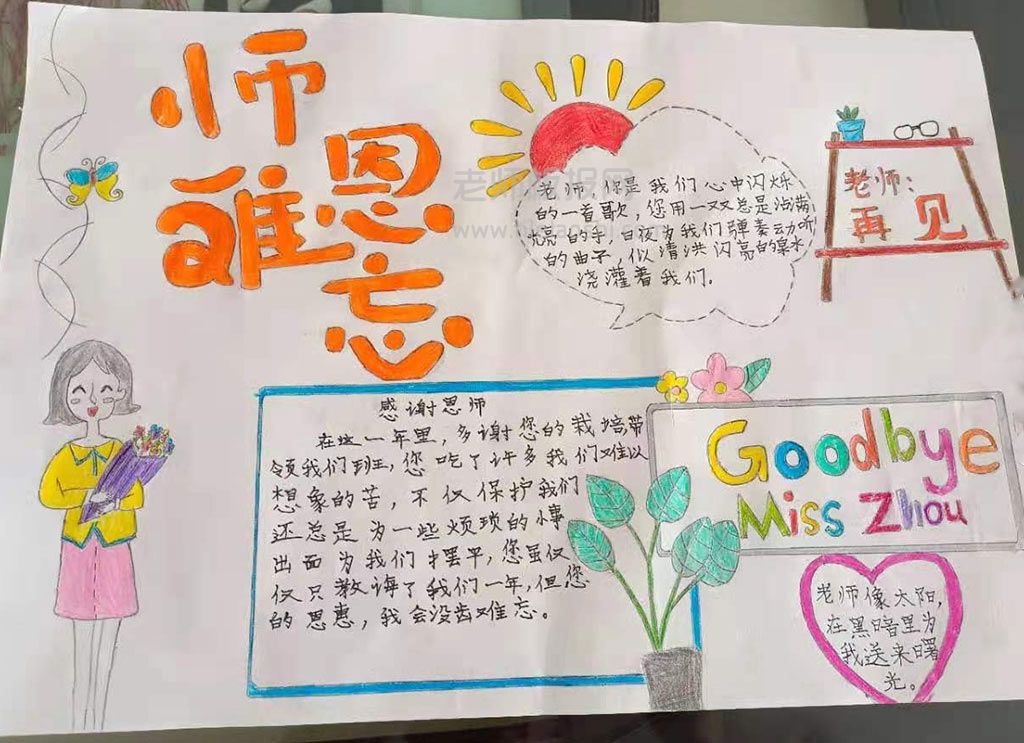 师恩
难忘
老师,你是我们心中闪烁
的一首歌,您用一双总是沾满
亮的手,日夜为我们弹奏动听
的曲子,似清洪闪亮的泉水
浇灌着我们。
老师:
再见
感谢恩师
在这一年里,多谢您的栽培带
领我们班,您吃了许多我们难以
想象的苦,不仅保护我们
还总是为一些烦琐的小事
出面为我们摆平,您虽仅
仅只教诲了我们一年,但您
的恩惠,我会没齿难忘。
Goodbye
Miss Zhou
老师像太阳,
在黑暗里为
我送来曙
光。